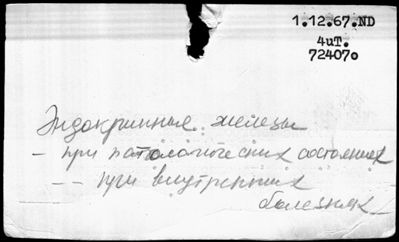 1.12.67.ND
4иТ.
72407о
Эндокринные железы
- при патологических состояниях
- - при внутренних
болезнях